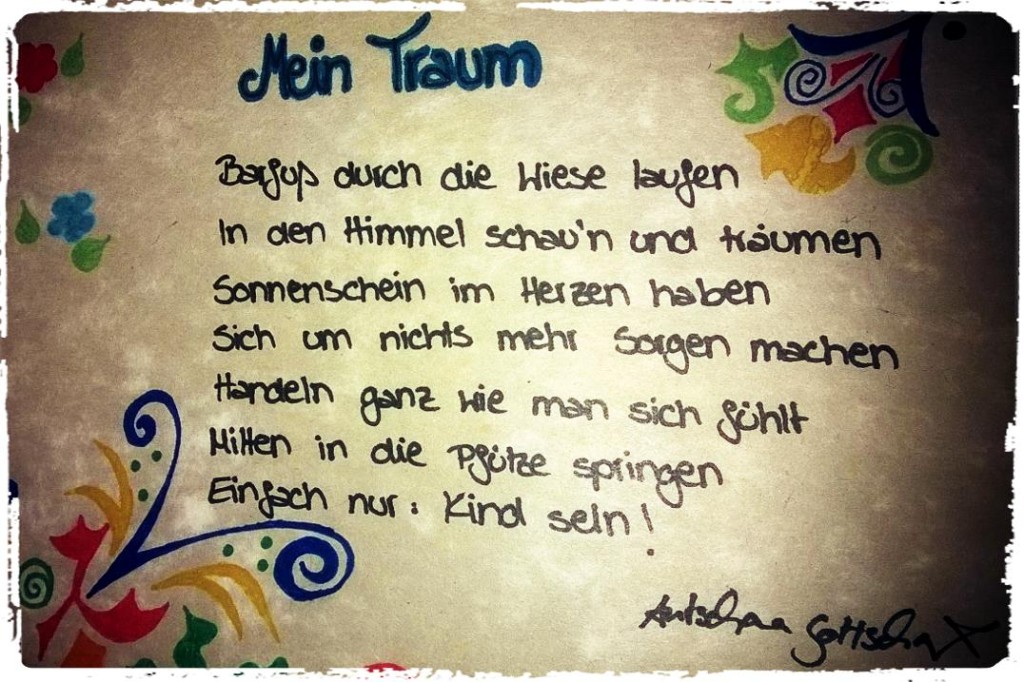 Mein Traum
Barfuß durch die Wiese laufen
In den Himmel schau'n und träumen
Sonnenschein im Herzen haben
Sich um nichts mehr Sorgen machen
Handeln ganz wie man sich fühlt
Mitten in die Pfütze springen
Einfach nur: Kind sein!